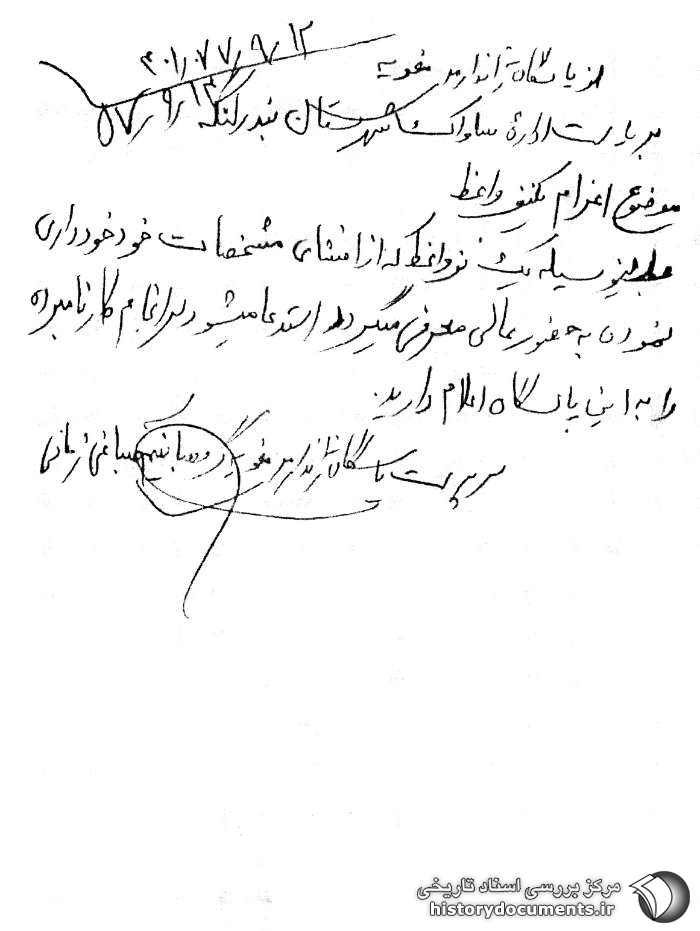 از پاسگاه ژاندارمری مغویه
۴۰۱/۰۷۷/۹/۱۲
بریاست اداره ساواک شهرستان بندرلنگه ۵۷/۹/۱۳
موضوع اعزام یکنفر واعظ
بدینوسیله یک نفر واعظ که از افشای مشخصات خود خودداری
نمودن به حضور عالی معرفی میگردد استدعا میشود سرانجام کار نامبرده
را به این پاسگاه اعلام دارید.
سرپرست پاسگاه ژاندارمری مغویه گروهبان صباغی زمانی
مرکز بررسی اسناد تاریخی
historydocuments.ir